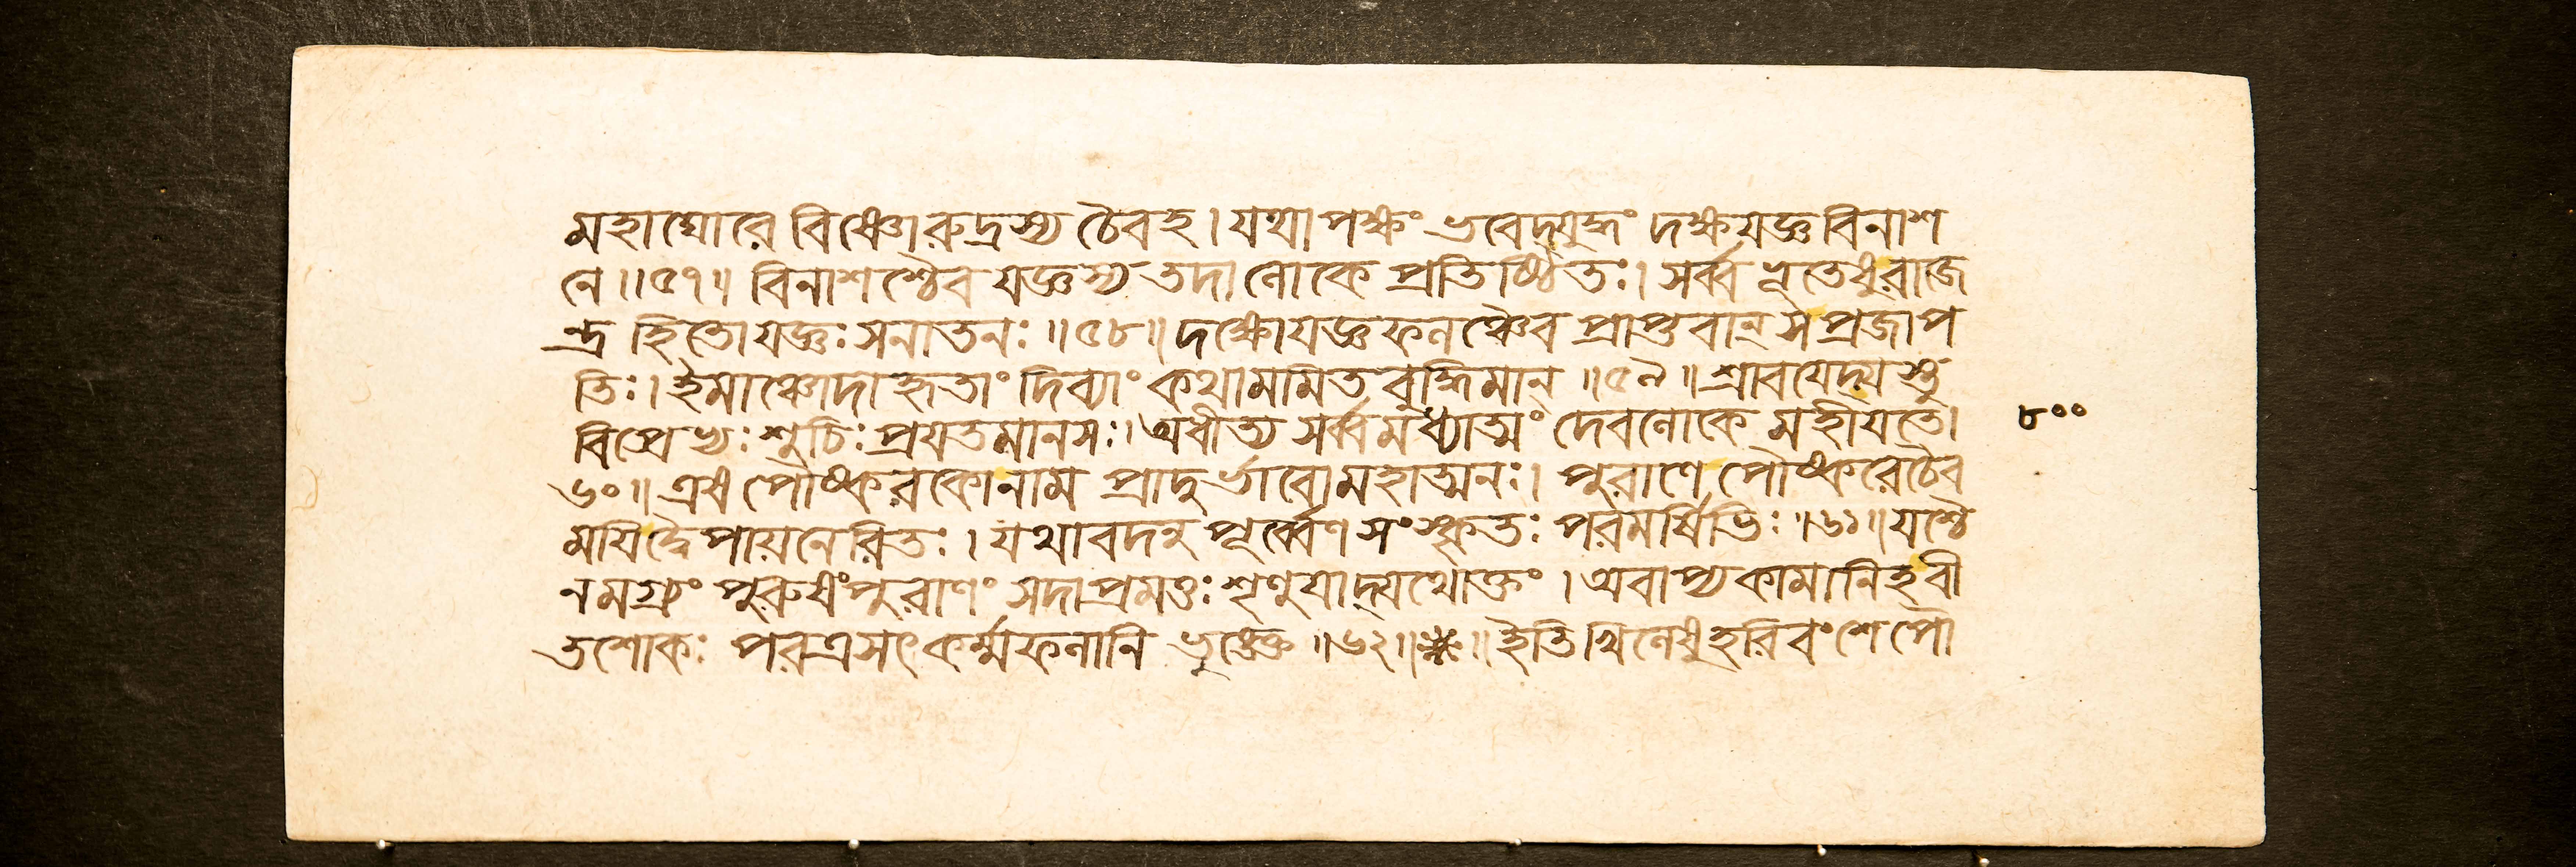 মহাঘোরে বিষ্ণোরুদ্রস্য চৈবহ। যথা পক্ষং ভবেদ্যুদ্ধং দক্ষযজ্ঞবিনাশ
নে॥৫৭॥ বিনাশশ্চৈব যজ্ঞস্য তদালোকে প্রতিষ্ঠিতঃ। সর্ব্বভূতেষুরাজে
ন্দ্র হিতোযজ্ঞঃসনাতনঃ॥৫৮॥দক্ষোযজ্ঞফলঞ্চৈব প্রাপ্তবান্ সপ্রজাপ
তিঃ।ইমাঞ্চোদাহৃতাং দিব্যাং কথামামিতবুদ্ধিমান্॥৫৯॥শ্রাবয়েদ্যস্তু
বিপ্রেভ্যঃশুচিঃপ্রযতমানসঃ।অধীত্য সর্ব্বমধ্যাত্মং দেবলোকে মহীযতে। ৮০০
৬০॥এষ পৌষ্করকোনাম প্রাদুর্ভাবোমহাত্মনঃ। পুরাণে পৌষ্করেচৈব
ময়িদ্বৈপায়নেরিতঃ। যথাবদনুপূর্ব্বেণসংস্কৃতঃ পরমর্ষিভিঃ॥৬১॥যশ্চৈ
নমগ্র্যং পুরুষংপুরাণং সদাপ্রমত্তঃশৃণুযাদ্যথোক্তং। অবাপ্যকামানিহবী
তশোকঃ পরত্রসৎকর্ম্মফলানি ভুঙ্ক্তে॥৬২॥ঃ॥ইতিখিলেষুহরিবংশেপৌ